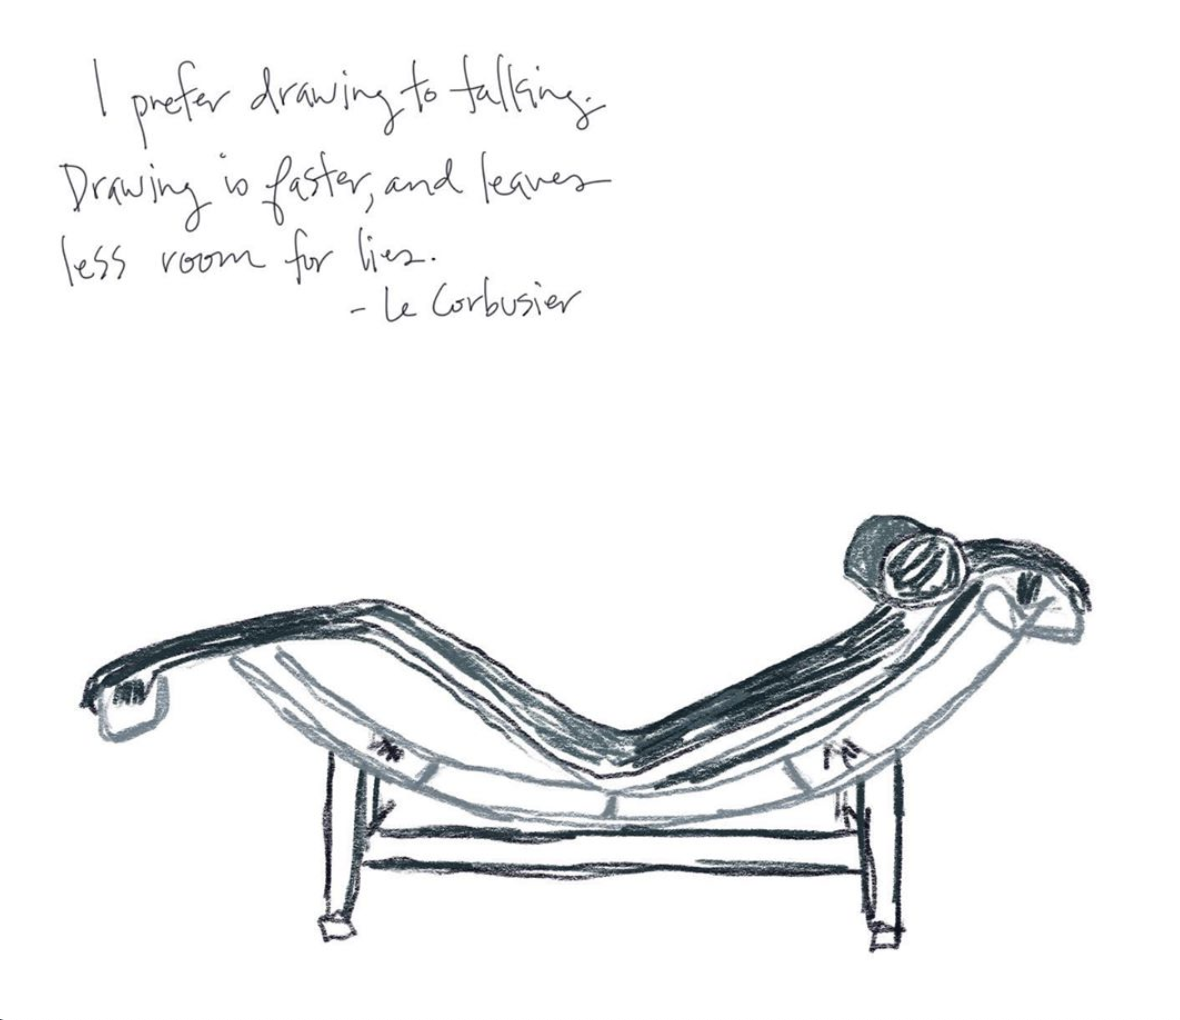 I prefer drawing to talking.
Drawing is faster, and leaves
less room for lies.
- Le Corbusier